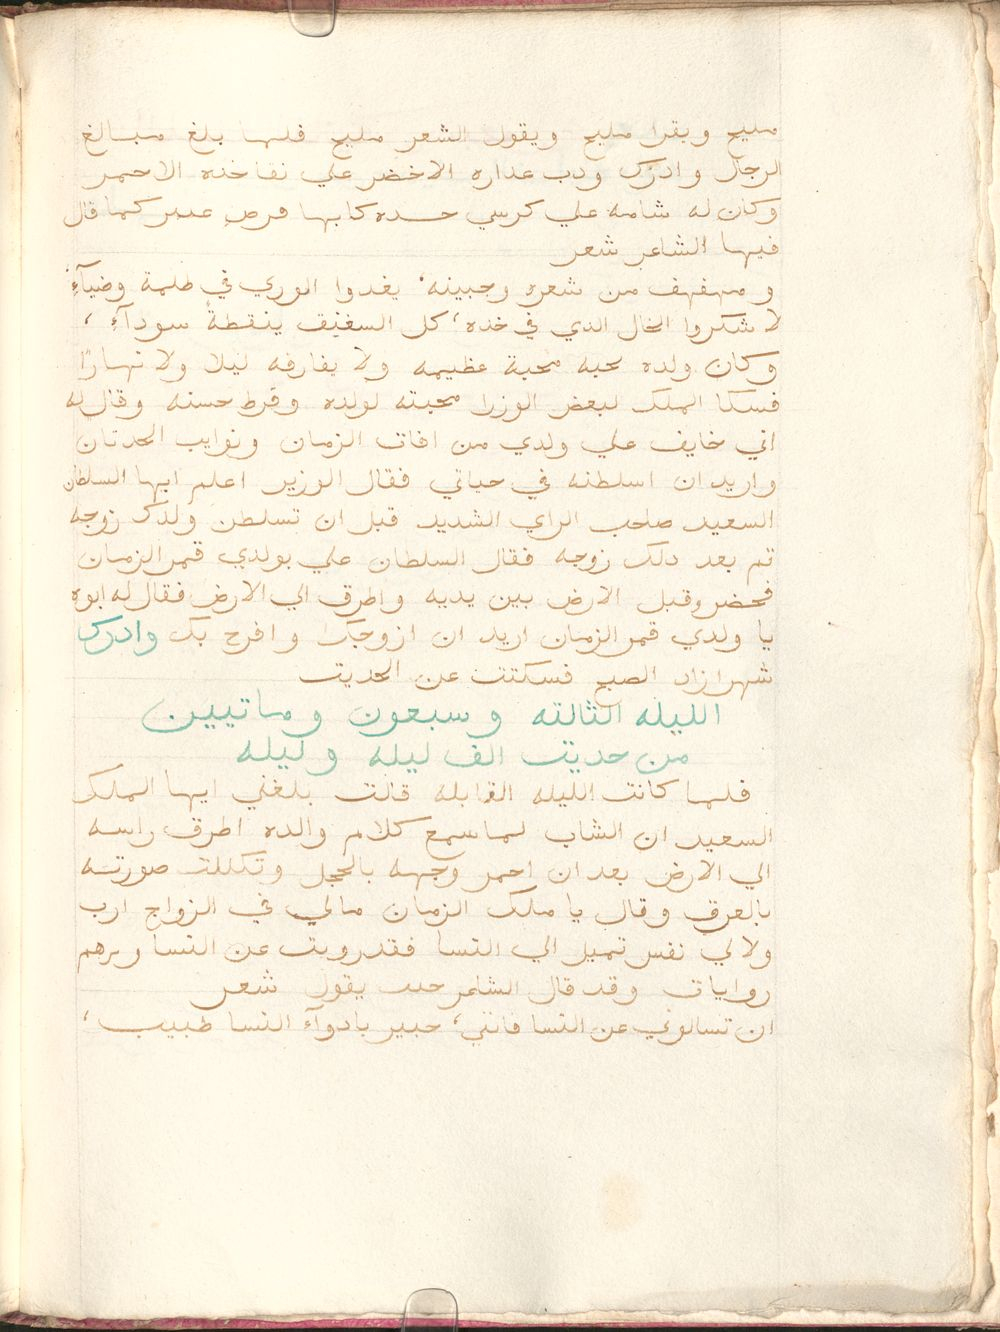 مليح ويقرا مليح ويقول الشعر مليح فلما بلغ مبالغ
الرجال وادرك ودب عداره الاخضر علي تفاحته الاحمر
وكان له شامه علي كرسي خده كانها قرص عنبر كما قال
فيها الشاعر شعر
ومهفهف من شعره وجبينه، يغدوا الوري في ظلمة وضيآءِ
لا تنكروا الخال الدي في خده، كل الشقيق بنقطة سودآءِ،
وكان ولده يحبه محبة عظيمه ولا يفارقه ليلا ولا نهارًا
فشكا الملك لبعض الوزرا محبته لولده وفرط حسنه وقال له
اني خايف علي ولدي من افات الزمان ونوايب الحدتان
واريد ان اسلطنه في حياتي فقال الوزير اعلم ايها السلطان
السعيد صاحب الراي الشديد قبل ان تسلطن ولدك زوجه
تم بعد دلك زوجه فقال السلطان علي بولدي قمر الزمان
فحضر وقبل الارض بين يديه واطرق الي الارض فقال له ابوه
يا ولدي قمر الزمان اريد ان ازوجك وافرح بك وادرك
شهرازاد الصبح فسكتت عن الحديت
الليله الثالته وسبعون وماتيين
من حديت الف ليله وليله
فلما كانت الليله القابله قالت بلغني ايها الملك
السعيد ان الشاب لما سمع كلام والده اطرق راسه
الي الارض بعد ان احمر وجهه بالخجل وتكللت صورته
بالعرق وقال يا ملك الزمان مالي في الزواج ارب
ولا لي نفس تميل الي النسا فقد رويت عن النسا وبرهم
روايات وقد قال الشاعر حيت يقول شعر
ان تسالوني عن النسا فانني، خبير بادوآء النسا طبيب،